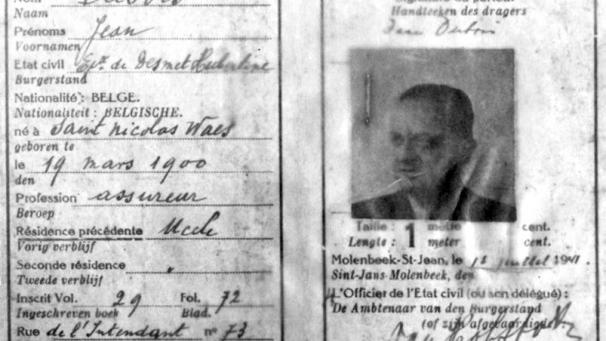 Naam
Prénoms Jean
Voornamen
Etat civil Ep. de Desmet Hubertine
Burgerstand
Nationalité : BELGE.
Nationaliteit : BELGISCHE.
né à Saint Nicolas Waes
geboren te
le 19 mars 1900
den
Profession assureur
Beroep
Résidence précédente Uccle
Vorig verblijf
Seconde résidence
Tweede verblijf
Inscrit Vol. 29 Fol. 72
Ingeschreven boek Blad.
Rue de l'Intendant n° 73
Handteeken des dragers
Jean Dubois
Taille : 1 mètre cent.
Lengte : meter cent.
Molenbeek-St-Jean, le juillet 1941
Sint-Jans-Molenbeek, den
L'Officier de l'Etat civil (ou son délégué) :
De Ambtenaar van den Burgerstand
(of zijn afgevaardigde)